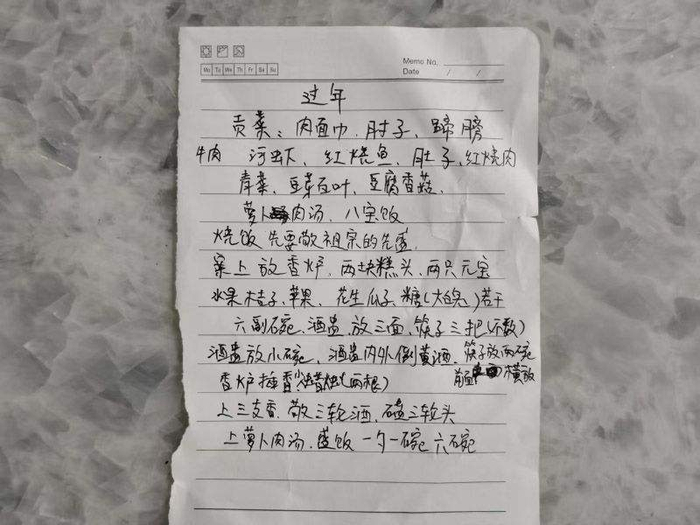 Memo No.
Mo Tu We Th Fr Sa Su
Date / /
过年
贡菜：肉面巾、肘子、蹄膀
牛肉 河虾、红烧鱼、肚子、红烧肉
青菜、豆芽百叶、豆腐香菇、
萝卜肉汤、八宝饭
烧饭 先要敬祖宗的先盛
案上放香炉、两块糕头、两只元宝
水果桔子、苹果、花生瓜子、糖(大的)若干
六副碗、酒盅、放三面、筷子三把(不数)
酒盅放小碗、酒盅内外倒黄酒、筷子放两碗
前 横放
香炉插香 蜡烛(两根)
上三支香、敬三轮酒、磕三轮头
上萝卜肉汤、盛饭 一勺一碗 六碗